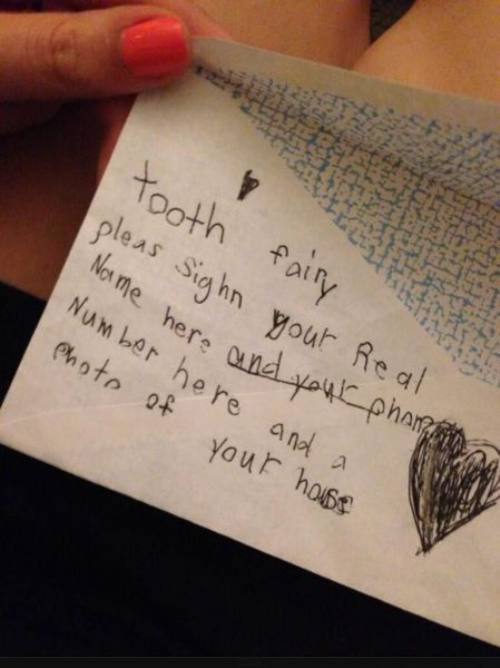 tooth fairy
pleas sighn your Real
Name here and your phone
Number here and a
photo of your house